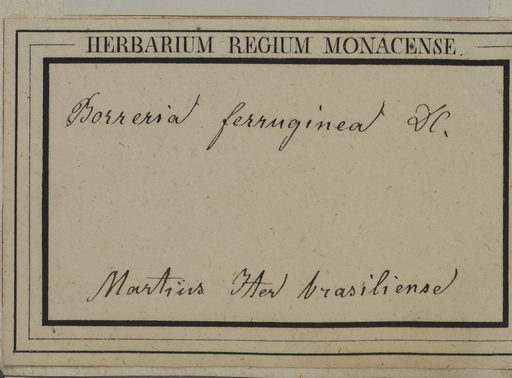 HERBARIUM REGIUM MONACENSE.
Borreria ferruginea DC.
Martius Iter brasiliense